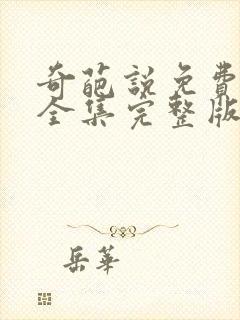 奇葩說免費
全集完整版
岳華